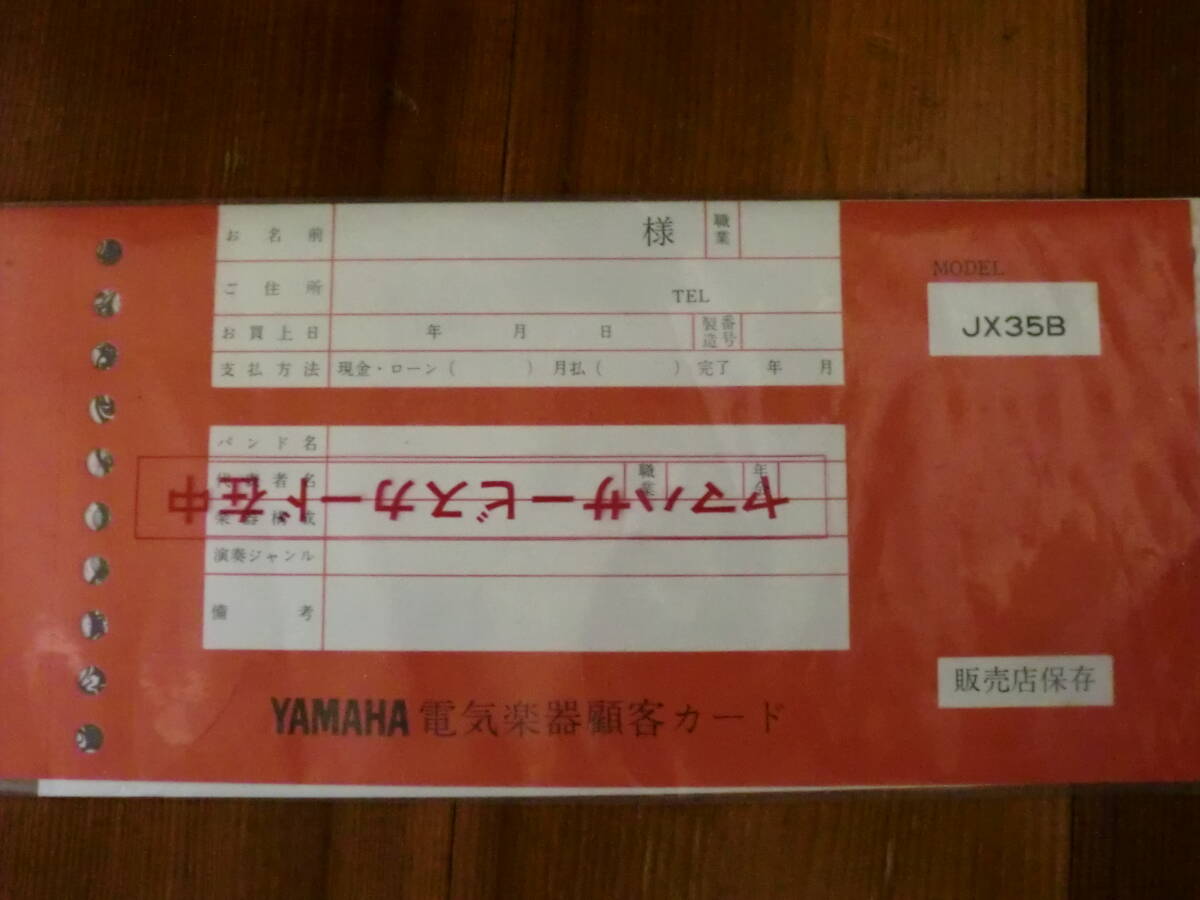 お名前 様 職業
ご住所 TEL
MODEL
JX35B
お買上日 年 月 日 製造番号
支払方法 現金・ローン( ) 月払( ) 完了 年 月
バンド名
代表者名 職業 年令
ヤマハサービスカード在中
楽器構成
演奏ジャンル
備考
販売店保存
YAMAHA 電気楽器顧客カード